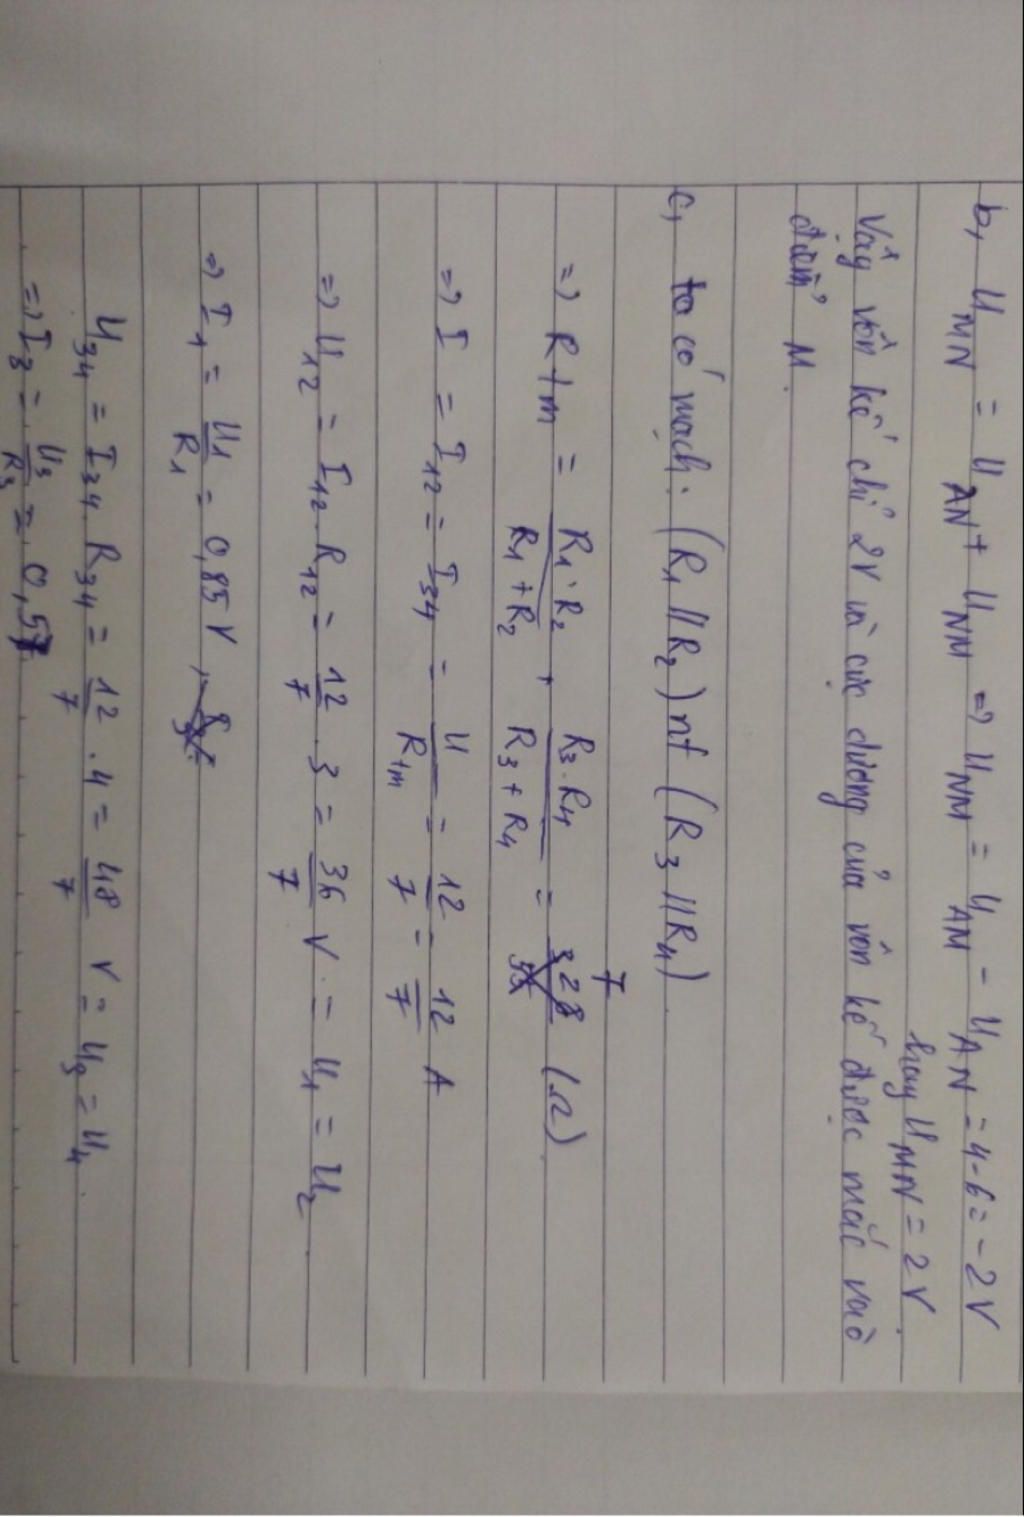 b, U_MN = U_AN + U_NM => U_NM = U_AM - U_AN = 4-6 = -2V
hay U_MN = 2V.
Vậy vôn kế chỉ 2V và cực dương của vôn kế được mắc vào
điểm M.
c, ta có mạch: (R1 // R2) nt (R3 // R4)
=> Rtm = R1.R2 / R1+R2 + R3.R4 / R3+R4 = 7 (Ω)
=> I = I12 = I34 = U / Rtm = 12/7 = 12/7 A
=> U12 = I12.R12 = 12/7 . 3 = 36/7 V = U1 = U2
=> I1 = U1/R1 = 0,85 V,
U34 = I34.R34 = 12/7 . 4 = 48/7 V = U3 = U4.
=> I3 = U3/R3 = 0,57